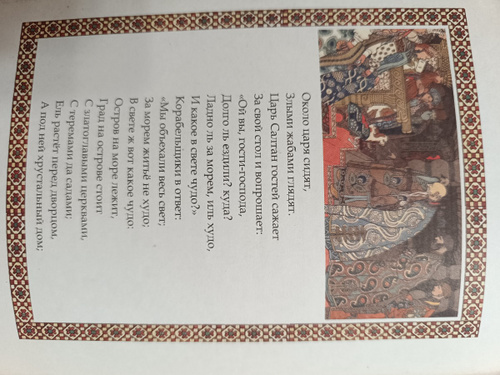 Около царя сидят,
Злыми жабами глядят.
Царь Салтан гостей сажает
За свой стол и вопрошает:
«Ой вы, гости-господа,
Долго ль ездили? куда?
Ладно ль за морем, иль худо,
И какое в свете чудо?»
Корабельщики в ответ:
«Мы объехали весь свет;
За морем житьё не худо;
В свете ж вот какое чудо:
Остров на море лежит,
Град на острове стоит
С златоглавыми церквами,
С теремами да садами;
Ель растёт перед дворцом,
А под ней хрустальный дом;